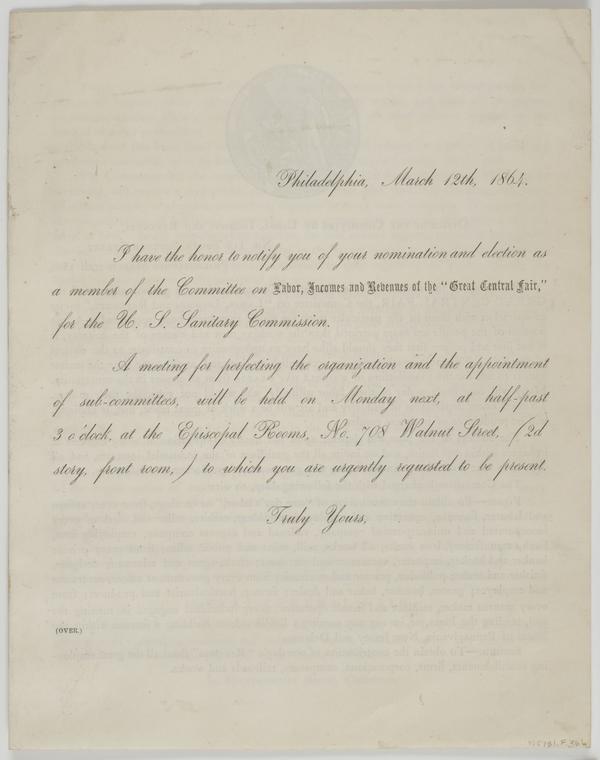 Philadelphia, March 12th, 1864.
I have the honor to notify you of your nomination and election as
a member of the Committee on Labor, Incomes and Revenues of the "Great Central Fair,"
for the U. S. Sanitary Commission.
A meeting for perfecting the organization and the appointment
of sub-committees, will be held on Monday next, at half-past
3 o'clock, at the Episcopal Rooms, No. 708 Walnut Street, (2d
story, front room,) to which you are urgently requested to be present.
Truly Yours,
(OVER.)